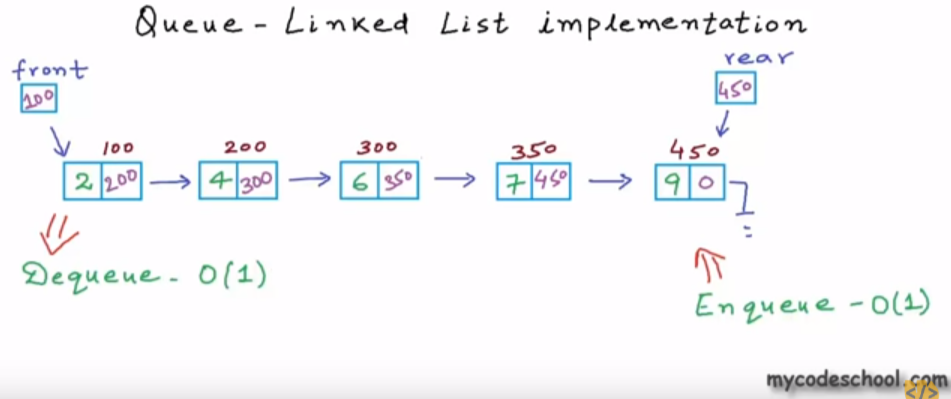 Queue - Linked List implementation
front
rear
100
450
100
200
300
350
450
2 200
4 300
6 350
7 450
9 0
Dequeue - O(1)
Enqueue - O(1)
mycodeschool.com
</>